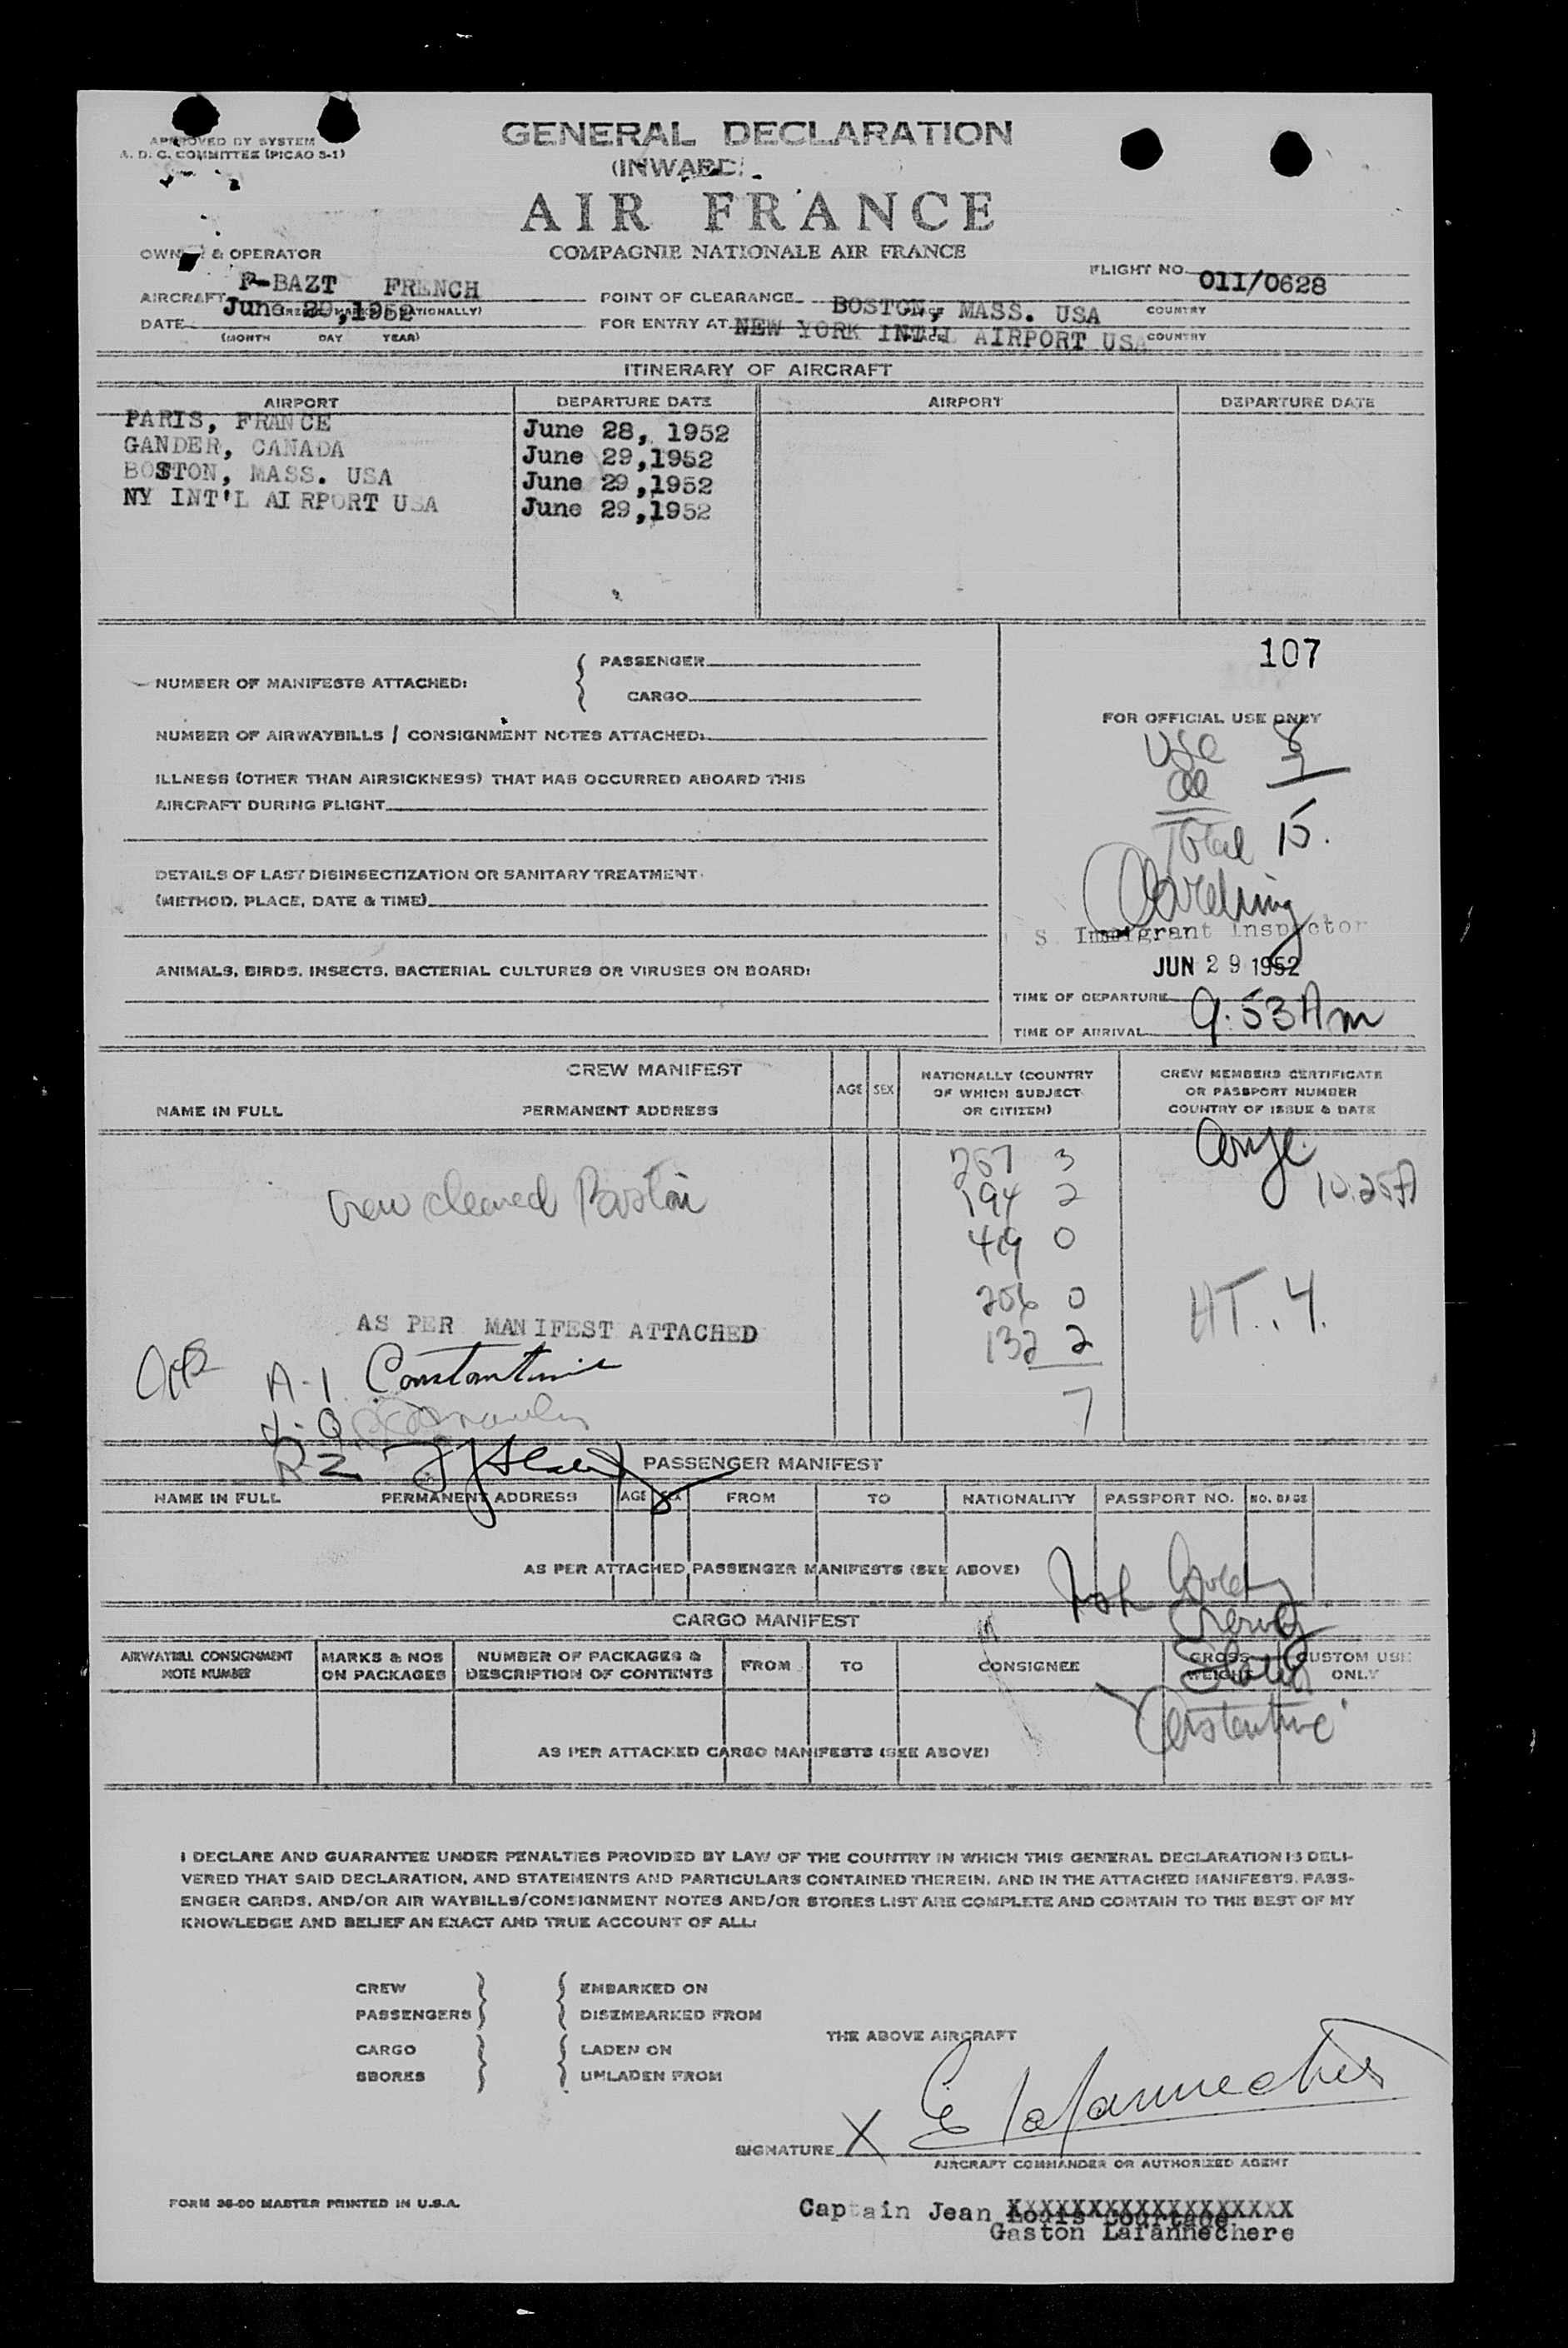 APPROVED BY SYSTEM
A. D. C. COMMITTEE (PICAO S-1)
GENERAL DECLARATION
(INWARD)
AIR FRANCE
COMPAGNIE NATIONALE AIR FRANCE
OWNER & OPERATOR
FLIGHT NO. 011/0628
AIRCRAFT F-BAZT FRENCH
POINT OF CLEARANCE BOSTON, MASS. USA COUNTRY
DATE June 29,1952
FOR ENTRY AT NEW YORK INT'L AIRPORT USA COUNTRY
(MONTH DAY YEAR)
ITINERARY OF AIRCRAFT
AIRPORT DEPARTURE DATE AIRPORT DEPARTURE DATE
PARIS, FRANCE June 28, 1952
GANDER, CANADA June 29,1952
BOSTON, MASS. USA June 29,1952
NY INT'L AIRPORT USA June 29,1952
107
NUMBER OF MANIFESTS ATTACHED: { PASSENGER
CARGO
FOR OFFICIAL USE ONLY
NUMBER OF AIRWAYBILLS / CONSIGNMENT NOTES ATTACHED:
USC 8
ILLNESS (OTHER THAN AIRSICKNESS) THAT HAS OCCURRED ABOARD THIS
AIRCRAFT DURING FLIGHT
7
Total 15.
DETAILS OF LAST DISINSECTIZATION OR SANITARY TREATMENT.
(METHOD, PLACE, DATE & TIME)
S. Immigrant Inspector
JUN 29 1952
ANIMALS, BIRDS, INSECTS, BACTERIAL CULTURES OR VIRUSES ON BOARD:
TIME OF DEPARTURE
TIME OF ARRIVAL 9:53 Am
CREW MANIFEST
NAME IN FULL PERMANENT ADDRESS AGE SEX NATIONALLY (COUNTRY OF WHICH SUBJECT OR CITIZEN) CREW MEMBERS CERTIFICATE OR PASSPORT NUMBER COUNTRY OF ISSUE & DATE
267 3
10.25A
Crew cleared Boston
194 2
419 0
206 0
HT. 4.
AS PER MANIFEST ATTACHED
132 2
A-1 Constantine
7
R2
PASSENGER MANIFEST
NAME IN FULL PERMANENT ADDRESS AGE SEX FROM TO NATIONALITY PASSPORT NO. NO. BAGS
AS PER ATTACHED PASSENGER MANIFESTS (SEE ABOVE)
CARGO MANIFEST
AIRWAYBILL CONSIGNMENT NOTE NUMBER MARKS & NOS ON PACKAGES NUMBER OF PACKAGES & DESCRIPTION OF CONTENTS FROM TO CONSIGNEE GROSS WEIGHT CUSTOM USE ONLY
Constantine
AS PER ATTACHED CARGO MANIFESTS (SEE ABOVE)
I DECLARE AND GUARANTEE UNDER PENALTIES PROVIDED BY LAW OF THE COUNTRY IN WHICH THIS GENERAL DECLARATION IS DELI-
VERED THAT SAID DECLARATION, AND STATEMENTS AND PARTICULARS CONTAINED THEREIN, AND IN THE ATTACHED MANIFESTS, PASS-
ENGER CARDS, AND/OR AIR WAYBILLS/CONSIGNMENT NOTES AND/OR STORES LIST ARE COMPLETE AND CONTAIN TO THE BEST OF MY
KNOWLEDGE AND BELIEF AN EXACT AND TRUE ACCOUNT OF ALL:
CREW } { EMBARKED ON
PASSENGERS } { DISEMBARKED FROM
THE ABOVE AIRCRAFT
CARGO } { LADEN ON
SBORES } { UNLADEN FROM
SIGNATURE X E Lafannechere
AIRCRAFT COMMANDER OR AUTHORIZED AGENT
FORM 36-00 MASTER PRINTED IN U.S.A.
Captain Jean Louis Courtade
Gaston Lafannechere